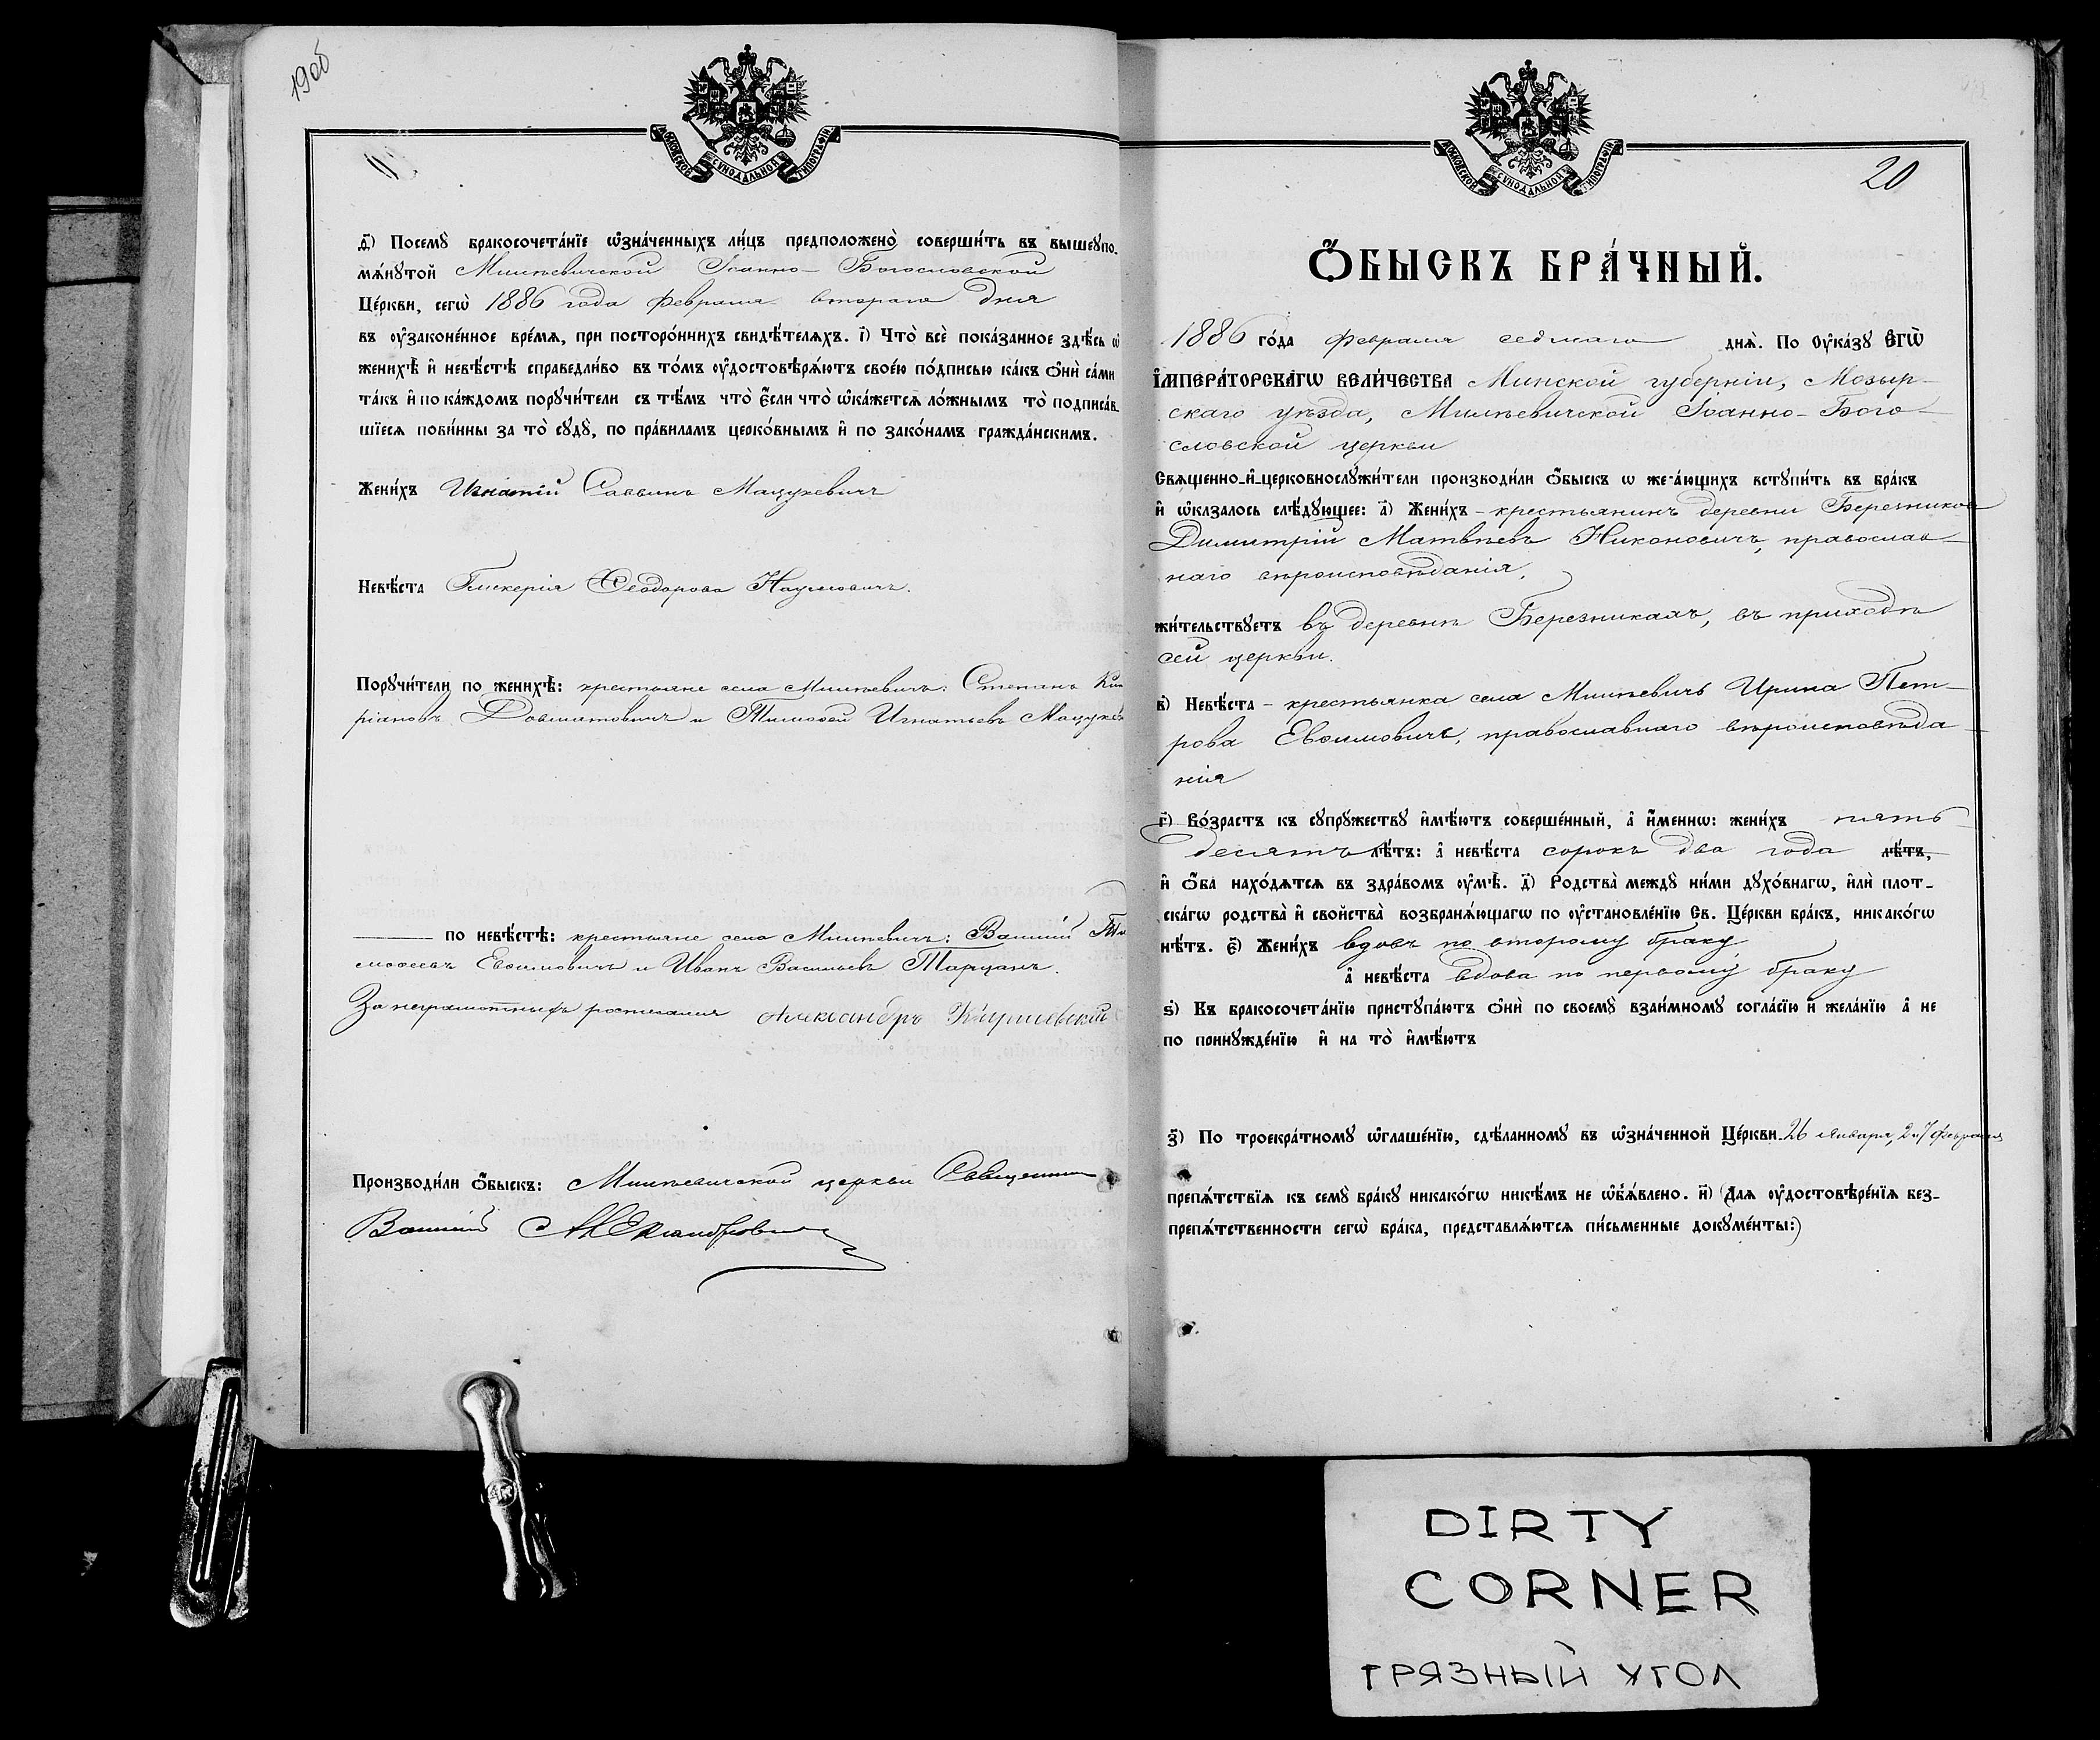 19об
МОСКОВСКОЙ СѴНОДАЛЬНОЙ ТИПОГРАФІИ
д҃) Посемꙋ̀ бракосочета́нїе ѡ҆зна́ченныхъ ли́цъ предположено̀ соверши́ть въ вышеꙋпо-
мѧ́нꙋтой Милѣвичской Іоанно-Богословской
Це́ркви, сегѡ̀ 1886 года февраля втораго дня
въ ᲂу҆законе́нное вре́мѧ, при посторо́ннихъ свидѣ́телѧхъ. і҃) Что̀ всѐ пока́занное здѣ́сь ѡ҆
женихѣ̀ и҆ невѣ́стѣ справедли́во въ то́мъ ᲂу҆достовѣрѧ́ютъ свое́ю по́дписью ка́къ ѻ҆нѝ са́ми
та́къ и҆ по ка́ждомъ порꙋчи́тели съ тѣ́мъ что̀ є҆́сли что̀ ѡ҆ка́жетсѧ ло́жнымъ то̀ подписа́в-
шїесѧ пови́нны за то̀ сꙋдꙋ̀, по пра́виламъ церко́внымъ и҆ по зако́намъ гражда́нскимъ.
Жени́хъ Игнатій Саввинъ Мацукевичъ
Невѣ́ста Гликерія Ѳеодорова Наумовичъ.
Порꙋчи́тели по женихѣ̀: крестьяне села Милѣвичъ: Степанъ Кип
ріановъ Довматовичъ и Тимоѳей Игнатьевъ Мацукев
по невѣ́стѣ: крестьяне села Милѣвичъ: Василій Ти
моѳеевъ Евѳимовичъ и Иванъ Васильевъ Тарцанъ.
За неграмотныхъ росписался Александръ
Производи́ли ѻ҆́быскъ: Милѣвичской церкви Священник
Василій
МОСКОВСКОЙ СѴНОДАЛЬНОЙ ТИПОГРАФІИ
20
Ѻ҆́БЫСКЪ БРА́ЧНЫЙ.
1886 го́да февраля седмаго днѧ̀. По ᲂу҆ка́зꙋ Є҆гѡ̀
І҆мпера́торскагѡ вели́чества Минской губерніи, Мозыр-
скаго уѣзда, Милѣвичской Іоанно-Бого-
словской церкви
Свѧщенно-и҆-церковнослꙋжи́тели производи́ли ѻ҆́быскъ ѡ же·а́ющихъ встꙋпи́ть въ бра́къ
и҆ ѡ҆казалось слѣ́дꙋющее: а҃) Жени́хъ - крестьянинъ деревни Березниковъ
Димитрій Матвѣевъ Никоновичъ, православ-
наго вѣроисповѣданія,
жи́тельствꙋетъ въ деревнѣ Березникахъ, въ приходѣ
сей церкви.
в҃) Невѣ́ста - крестьянка села Милѣвичъ Ирина Пет-
рова Евѳимовичъ, православнаго вѣроисповѣда-
нія
г҃) Во́зрастъ къ сꙋпрꙋ́жествꙋ и҆мѣ́ютъ соверше́нный, а҆ и҆́меннѡ: жени́хъ пять-
десятъ лѣ́тъ: а҆ невѣ́ста сорокъ два года лѣ́тъ,
и҆ ѻ҆́ба нахо́дѧтсѧ въ здра́вомъ ᲂу҆мѣ̀. д҃) Родства̀ междꙋ̀ ни́ми дꙋхо́внагѡ, и҆лѝ плот-
ска́гѡ родства̀ и҆ свойства̀ возбранѧ́ющагѡ по ᲂу҆становле́нїю Св. Це́ркви бра́къ, никако́гѡ
нѣ́тъ. є҃) Жени́хъ вдовъ по второму браку
а҆ невѣ́ста вдова по первому браку
ѕ҃) Къ бракосочета́нїю пристꙋпа́ютъ ѻ҆нѝ по своемꙋ̀ взаи́мномꙋ согла́сїю и҆ жела́нїю а҆ не
по принꙋжде́нїю и҆ на то̀ и҆мѣ́ютъ
з҃) По троекра́тномꙋ ѡ҆глаше́нїю, сдѣ́ланномꙋ въ ѡ҆зна́ченной Це́ркви 26 января, 2 и 7 февраля
препѧ́тствїѧ къ семꙋ̀ бра́кꙋ никако́гѡ никѣ́мъ не ѡ҆б̾ѧ́влено. и҃) (Длѧ ᲂу҆достовѣре́нїѧ без-
препѧ́тственности сегѡ̀ бра́ка, представлѧ́ютсѧ пи́сьменные докꙋме́нты:)
DIRTY
CORNER
ГРЯЗНЫЙ УГОЛ